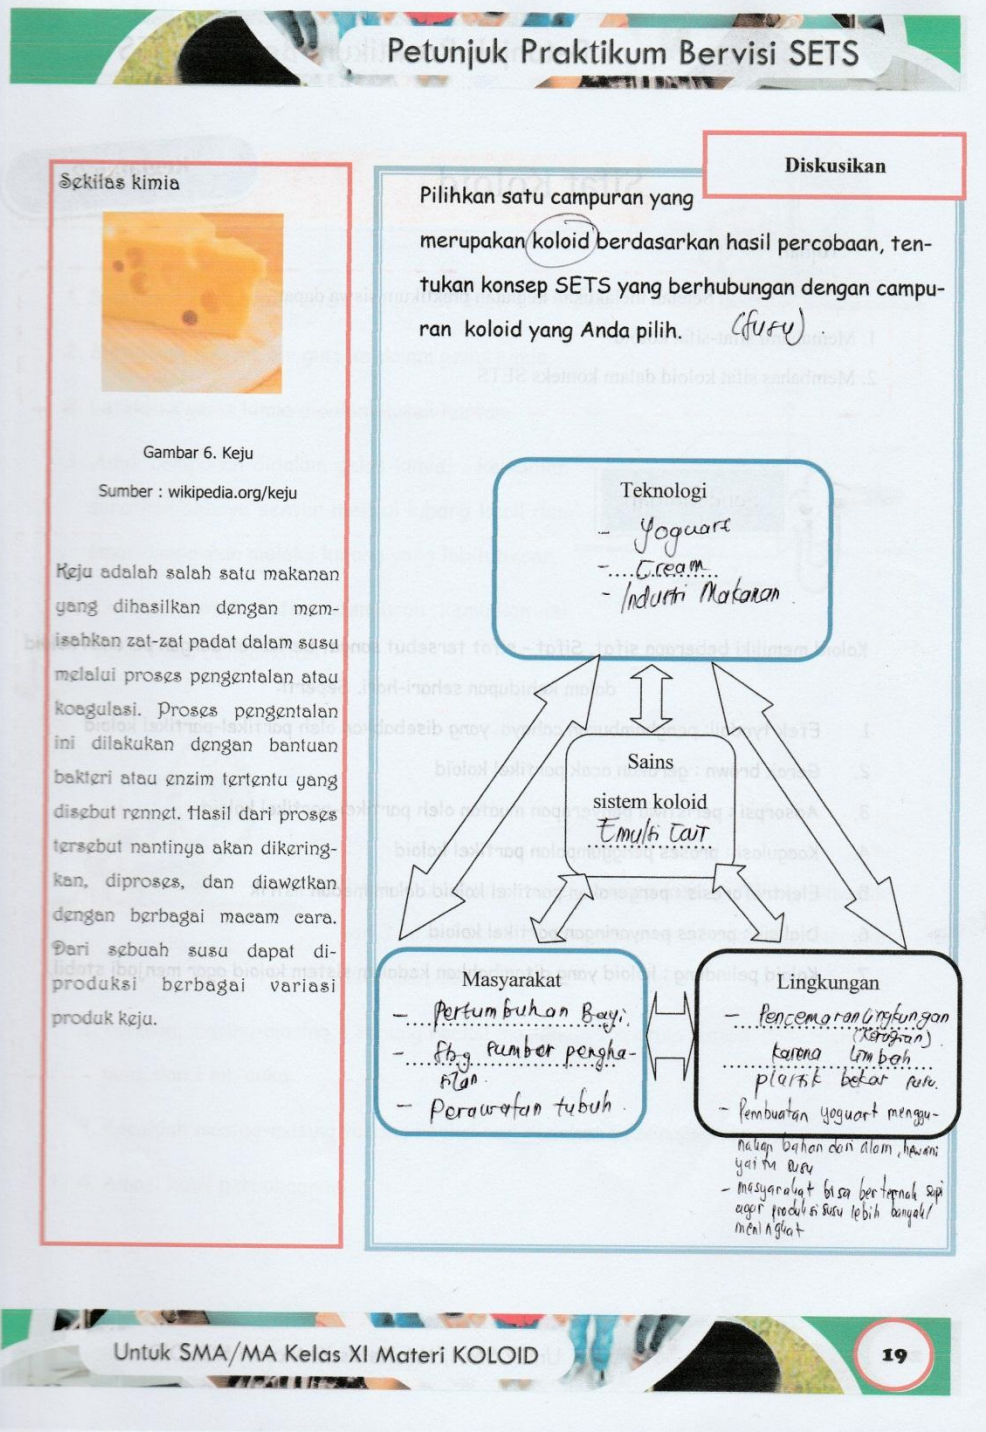 Petunjuk Praktikum Bervisi SETS
Sekilas kimia
Gambar 6. Keju
Sumber : wikipedia.org/keju
Keju adalah salah satu makanan
yang dihasilkan dengan mem-
isahkan zat-zat padat dalam susu
melalui proses pengentalan atau
koagulasi. Proses pengentalan
ini dilakukan dengan bantuan
bakteri atau enzim tertentu yang
disebut rennet. Hasil dari proses
tersebut nantinya akan dikering-
kan, diproses, dan diawetkan
dengan berbagai macam cara.
Dari sebuah susu dapat di-
produksi berbagai variasi
produk keju.
Diskusikan
Pilihkan satu campuran yang
merupakan koloid berdasarkan hasil percobaan, ten-
tukan konsep SETS yang berhubungan dengan campu-
ran koloid yang Anda pilih. (susu).
Teknologi
- Yoguart
- Cream
- Industri Makanan.
Sains
sistem koloid
Emulsi Cair
Masyarakat
- Pertumbuhan Bayi.
- Sbg sumber pengha-
silan.
- Perawatan tubuh.
Lingkungan
- Pencemaran Lingkungan
(Kerugian)
karena limbah
plastik bekas susu.
- Pembuatan yoguart menggu-
nakan bahan dari alam, hewani
yaitu susu
- masyarakat bisa berternak sapi
agar produksi susu lebih banyak/
meningkat
Untuk SMA/MA Kelas XI Materi KOLOID
19